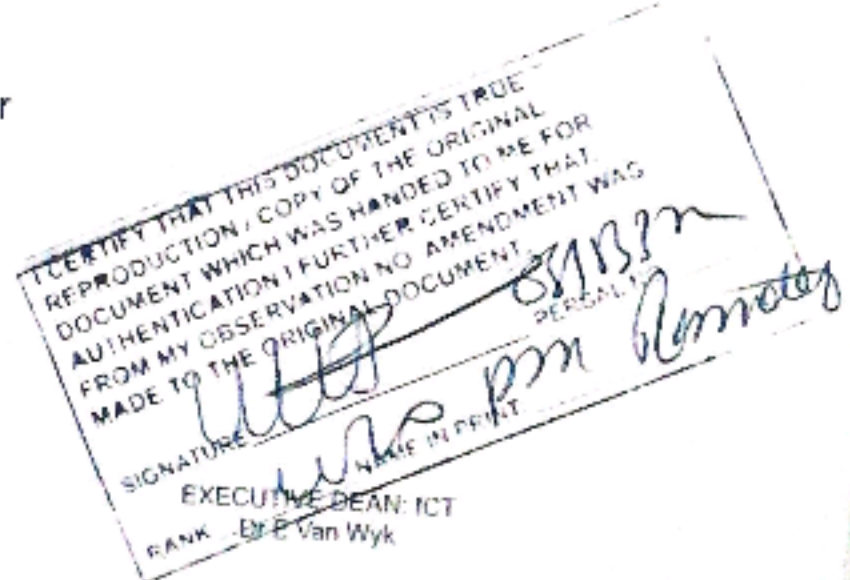 r
I CERTIFY THAT THIS DOCUMENT IS TRUE
REPRODUCTION / COPY OF THE ORIGINAL
DOCUMENT WHICH WAS HANDED TO ME FOR
AUTHENTICATION I FURTHER CERTIFY THAT,
FROM MY OBSERVATION NO AMENDMENT WAS
MADE TO THE ORIGINAL DOCUMENT.
SIGNATURE
NAME IN PRINT
EXECUTIVE DEAN: ICT
RANK
Van Wyk